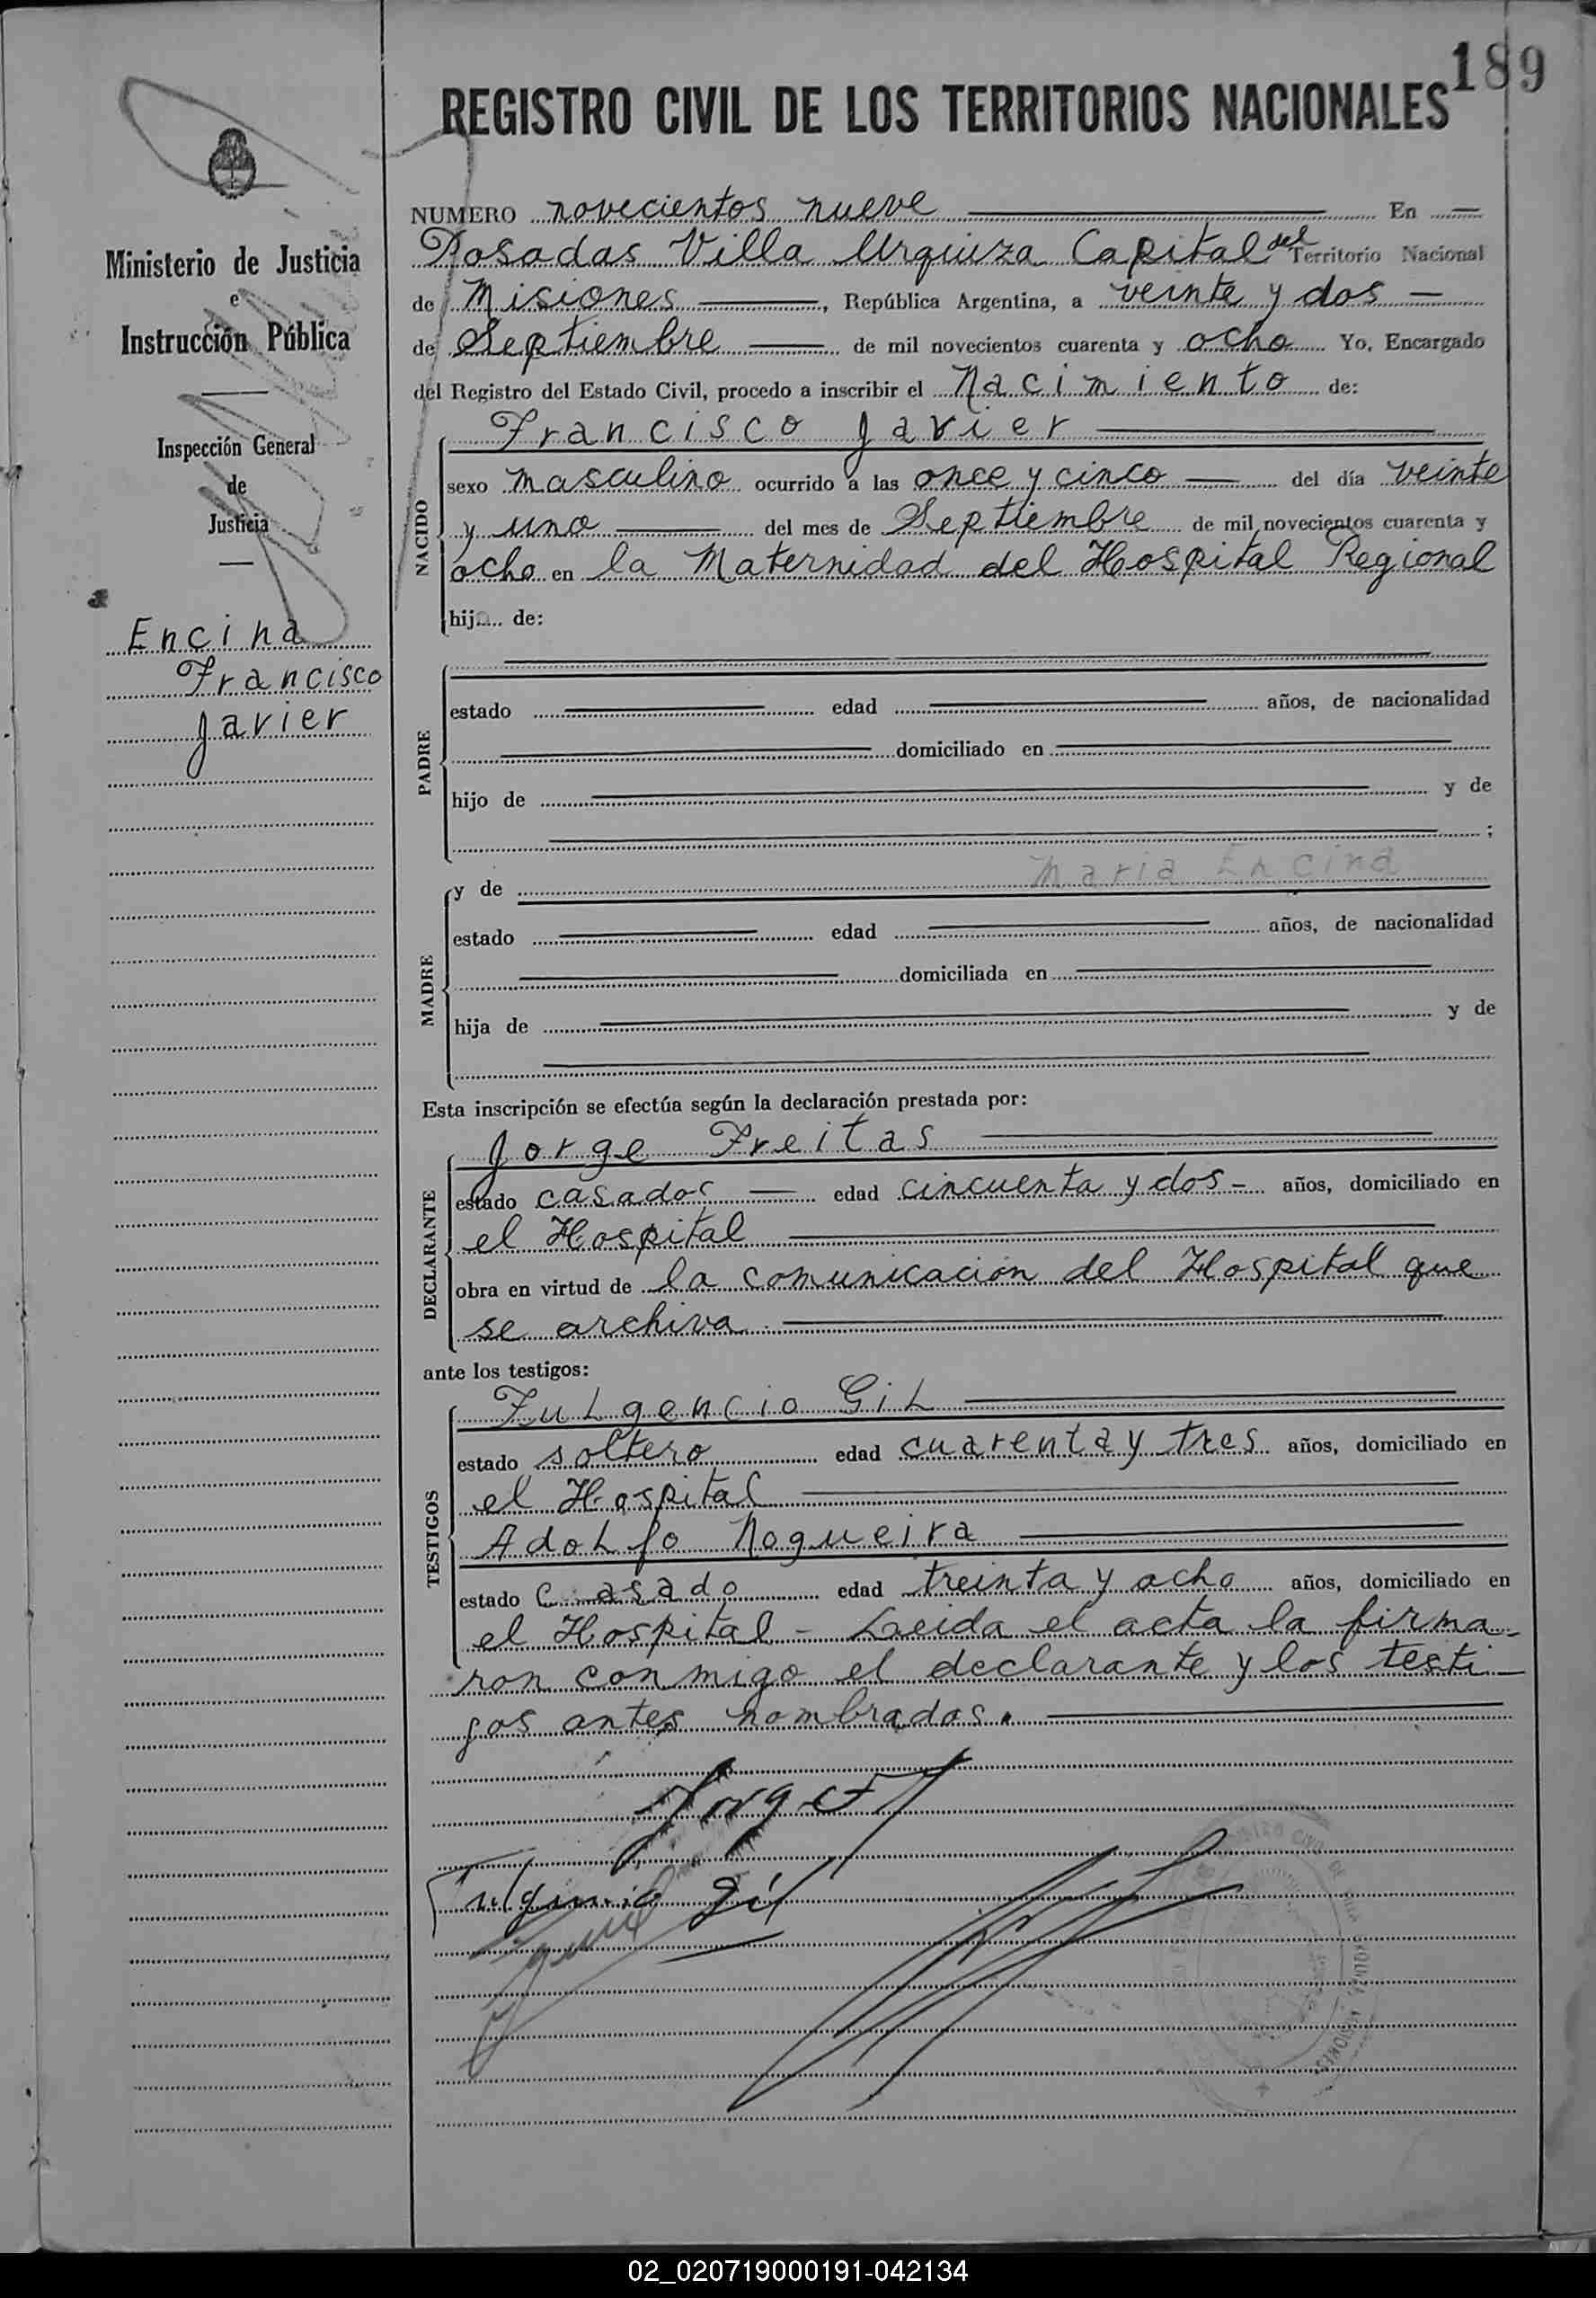 189
REGISTRO CIVIL DE LOS TERRITORIOS NACIONALES
Ministerio de Justicia
e
Instrucción Pública
Inspección General
de
Justicia
Encina
Francisco
Javier
NUMERO novecientos nueve En
Posadas Villa Urquiza Capital del Territorio Nacional
de Misiones, República Argentina, a veinte y dos
de Septiembre de mil novecientos cuarenta y ocho Yo, Encargado
del Registro del Estado Civil, procedo a inscribir el Nacimiento de:
Francisco Javier
NACIDO
sexo masculino ocurrido a las once y cinco del día veinte
y uno del mes de Septiembre de mil novecientos cuarenta y
ocho en la Maternidad del Hospital Regional
hijo de:
PADRE
estado edad años, de nacionalidad
domiciliado en
hijo de y de
;
MADRE
y de Maria Encina
estado edad años, de nacionalidad
domiciliada en
hija de y de
Esta inscripción se efectúa según la declaración prestada por:
DECLARANTE
Jorge Freitas
estado casados edad cincuenta y dos años, domiciliado en
el Hospital
obra en virtud de la comunicación del Hospital que
se archiva
ante los testigos:
TESTIGOS
Fulgencio Gil
estado soltero edad cuarenta y tres años, domiciliado en
el Hospital
Adolfo Nogueira
estado Casado edad treinta y ocho años, domiciliado en
el Hospital - Leida el acta la firma-
ron conmigo el declarante y los testi-
gos antes nombrados.
Jorge F
Fulgencio Gil
02_020719000191-042134